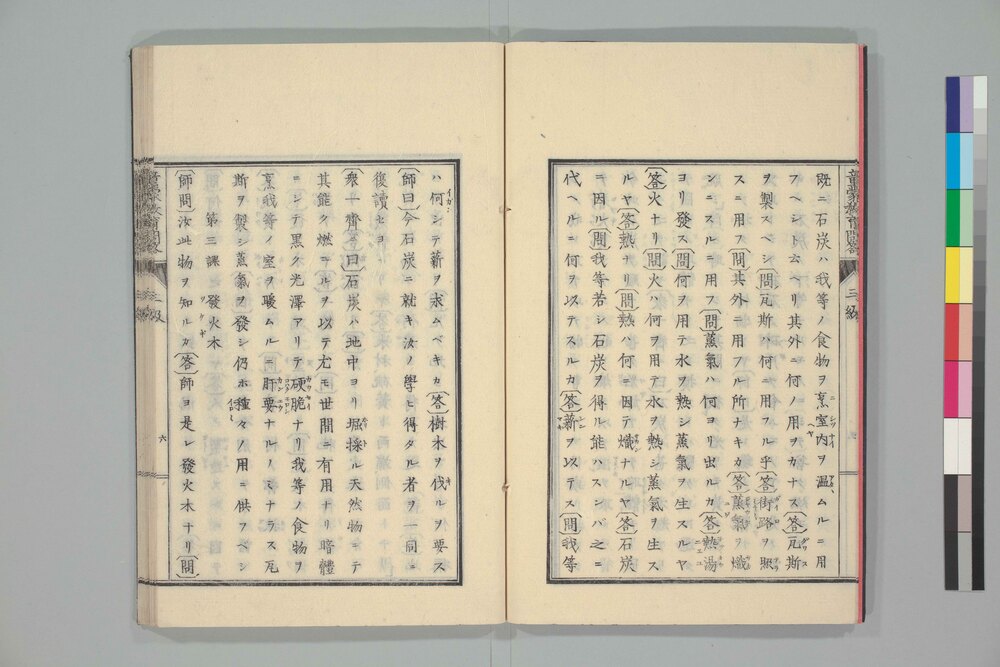 既ニ石炭ハ我等ノ食物ヲ烹室内ヲ温ムルニ用
フベシト云ヘリ其外ニ何ノ用ヲカナス〔答〕瓦斯
ヲ製スベシ〔問〕瓦斯ハ何ニ用フル乎〔答〕街路ヲ照
スニ用フ〔問〕其外ニ用フル所ナキカ〔答〕蒸氣ヲ熾
ンニスルニ用フ〔問〕蒸氣ハ何ヨリ出ルカ〔答〕熱湯
ヨリ發ス〔問〕何ヲ用テ水ヲ熱シ蒸氣ヲ生スルヤ
〔答〕火ナリ〔問〕火ハ何ヲ用テ水ヲ熱シ蒸氣ヲ生ス
ルヤ〔答〕熱ナリ〔問〕熱ハ何ニ因テ熾ナルヤ〔答〕石炭
ニ因ル〔問〕我等若シ石炭ヲ得ル能ハスンバ之ニ
代ヘルニ何ヲ以テスルカ〔答〕薪ヲ以テス〔問〕我等
三級
ハ何シテ薪ヲ求ムベキカ〔答〕樹木ヲ伐ルヲ要ス
〔師曰〕今石炭ニ就キ汝ノ學ヒ得タル者ヲ一同ニ
復讀セヨ
〔衆一齊ニ曰〕石炭ハ地中ヨリ堀採ル天然物ニテ
其能ク燃ニルヲ以テ尤モ世間ニ有用ナリ暗體
ニシテ黒ク光澤アリテ硬脆ナリ我等ノ食物ヲ
烹我等ノ室ヲ暖ムルニ肝要ナルノミナラス瓦
斯ヲ製シ蒸氣ヲ發シ仍ホ種々ノ用ニ供フベシ
第三課 發火木
〔師問〕汝此物ヲ知ルカ〔答〕師ヨ是レ發火木ナリ〔問〕
三級
六